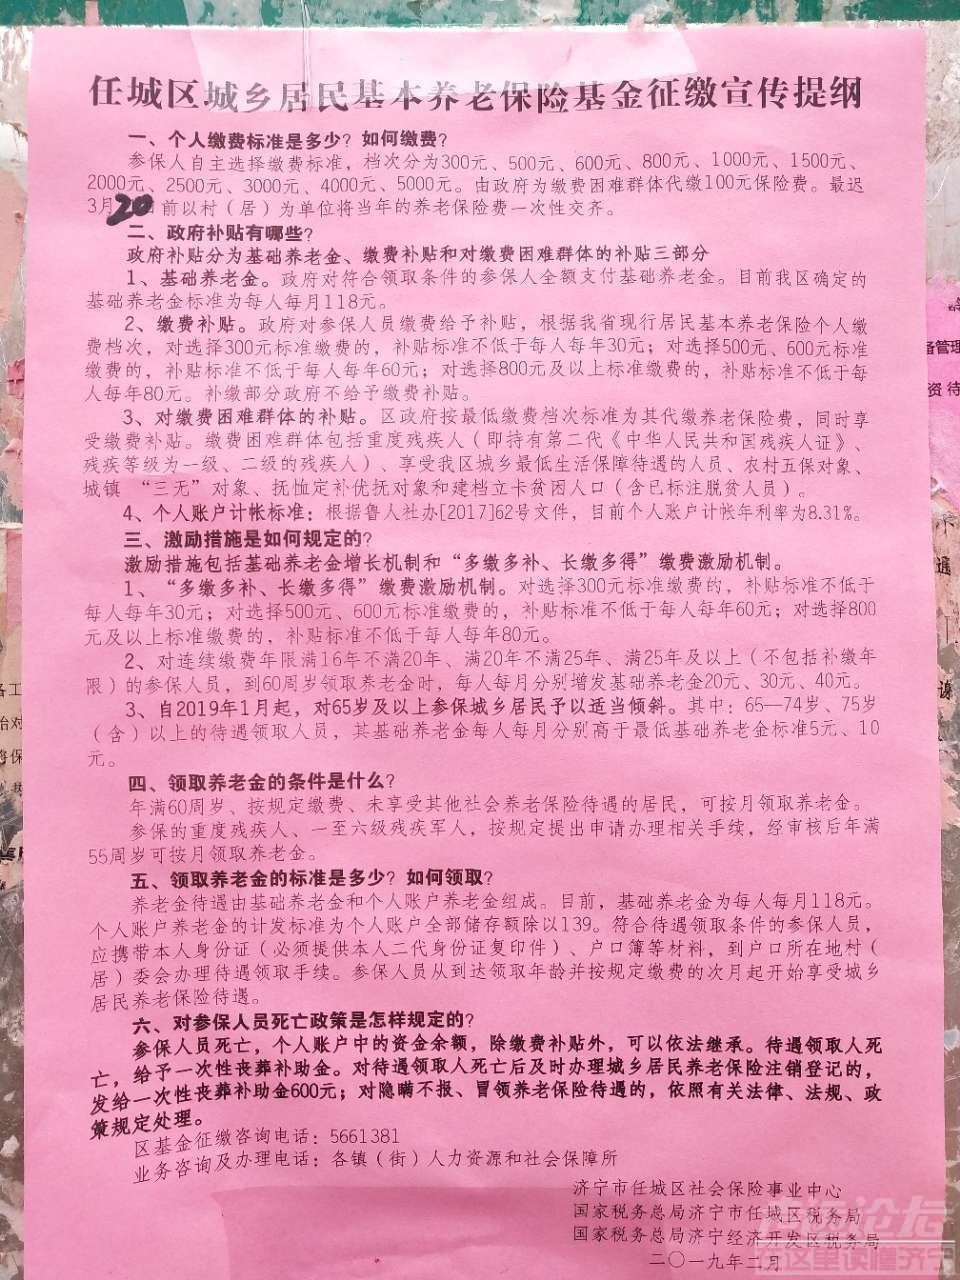 任城区城乡居民基本养老保险基金征缴宣传提纲
一、个人缴费标准是多少？如何缴费？
参保人自主选择缴费标准，档次分为300元、500元、600元、800元、1000元、1500元、
2000元、2500元、3000元、4000元、5000元。由政府为缴费困难群体代缴100元保险费。最迟
3月20日前以村（居）为单位将当年的养老保险费一次性交齐。
二、政府补贴有哪些？
政府补贴分为基础养老金、缴费补贴和对缴费困难群体的补贴三部分
1、基础养老金。政府对符合领取条件的参保人全额支付基础养老金。目前我区确定的
基础养老金标准为每人每月118元。
2、缴费补贴。政府对参保人员缴费给予补贴，根据我省现行居民基本养老保险个人缴
费档次，对选择300元标准缴费的，补贴标准不低于每人每年30元；对选择500元、600元标准
缴费的，补贴标准不低于每人每年60元；对选择800元及以上标准缴费的，补贴标准不低于每
人每年80元。补缴部分政府不给予缴费补贴。
3、对缴费困难群体的补贴。区政府按最低缴费档次标准为其代缴养老保险费，同时享
受缴费补贴。缴费困难群体包括重度残疾人（即持有第二代《中华人民共和国残疾人证》、
残疾等级为一级、二级的残疾人）、享受我区城乡最低生活保障待遇的人员、农村五保对象、
城镇“三无”对象、抚恤定补优抚对象和建档立卡贫困人口（含已标注脱贫人员）。
4、个人账户计帐标准：根据鲁人社办[2017]62号文件，目前个人账户计帐年利率为8.31%。
三、激励措施是如何规定的？
激励措施包括基础养老金增长机制和“多缴多补、长缴多得”缴费激励机制。
1、“多缴多补、长缴多得”缴费激励机制。对选择300元标准缴费的，补贴标准不低于
每人每年30元；对选择500元、600元标准缴费的，补贴标准不低于每人每年60元；对选择800
元及以上标准缴费的，补贴标准不低于每人每年80元。
2、对连续缴费年限满16年不满20年、满20年不满25年、满25年及以上（不包括补缴年
限）的参保人员，到60周岁领取养老金时，每人每月分别增发基础养老金20元、30元、40元。
3、自2019年1月起，对65岁及以上参保城乡居民予以适当倾斜。其中：65—74岁、75岁
（含）以上的待遇领取人员，其基础养老金每人每月分别高于最低基础养老金标准5元、10
元。
四、领取养老金的条件是什么？
年满60周岁、按规定缴费、未享受其他社会养老保险待遇的居民，可按月领取养老金。
参保的重度残疾人、一至六级残疾军人，按规定提出申请办理相关手续，经审核后年满
55周岁可按月领取养老金。
五、领取养老金的标准是多少？如何领取？
养老金待遇由基础养老金和个人账户养老金组成。目前，基础养老金为每人每月118元。
个人账户养老金的计发标准为个人账户全部储存额除以139。符合待遇领取条件的参保人员，
应携带本人身份证（必须提供本人二代身份证复印件）、户口簿等材料，到户口所在地村（
居）委会办理待遇领取手续。参保人员从到达领取年龄并按规定缴费的次月起开始享受城乡
居民养老保险待遇。
六、对参保人员死亡政策是怎样规定的？
参保人员死亡，个人账户中的资金余额，除缴费补贴外，可以依法继承。待遇领取人死
亡，给予一次性丧葬补助金。对待遇领取人死亡后及时办理城乡居民养老保险注销登记的，
发给一次性丧葬补助金600元；对隐瞒不报、冒领养老保险待遇的，依照有关法律、法规、政
策规定处理。
区基金征缴咨询电话：5661381
业务咨询及办理电话：各镇（街）人力资源和社会保障所
济宁市任城区社会保险事业中心
国家税务总局济宁市任城区税务局
国家税务总局济宁经济开发区税务局
二〇一九年二月
在这里读懂济宁